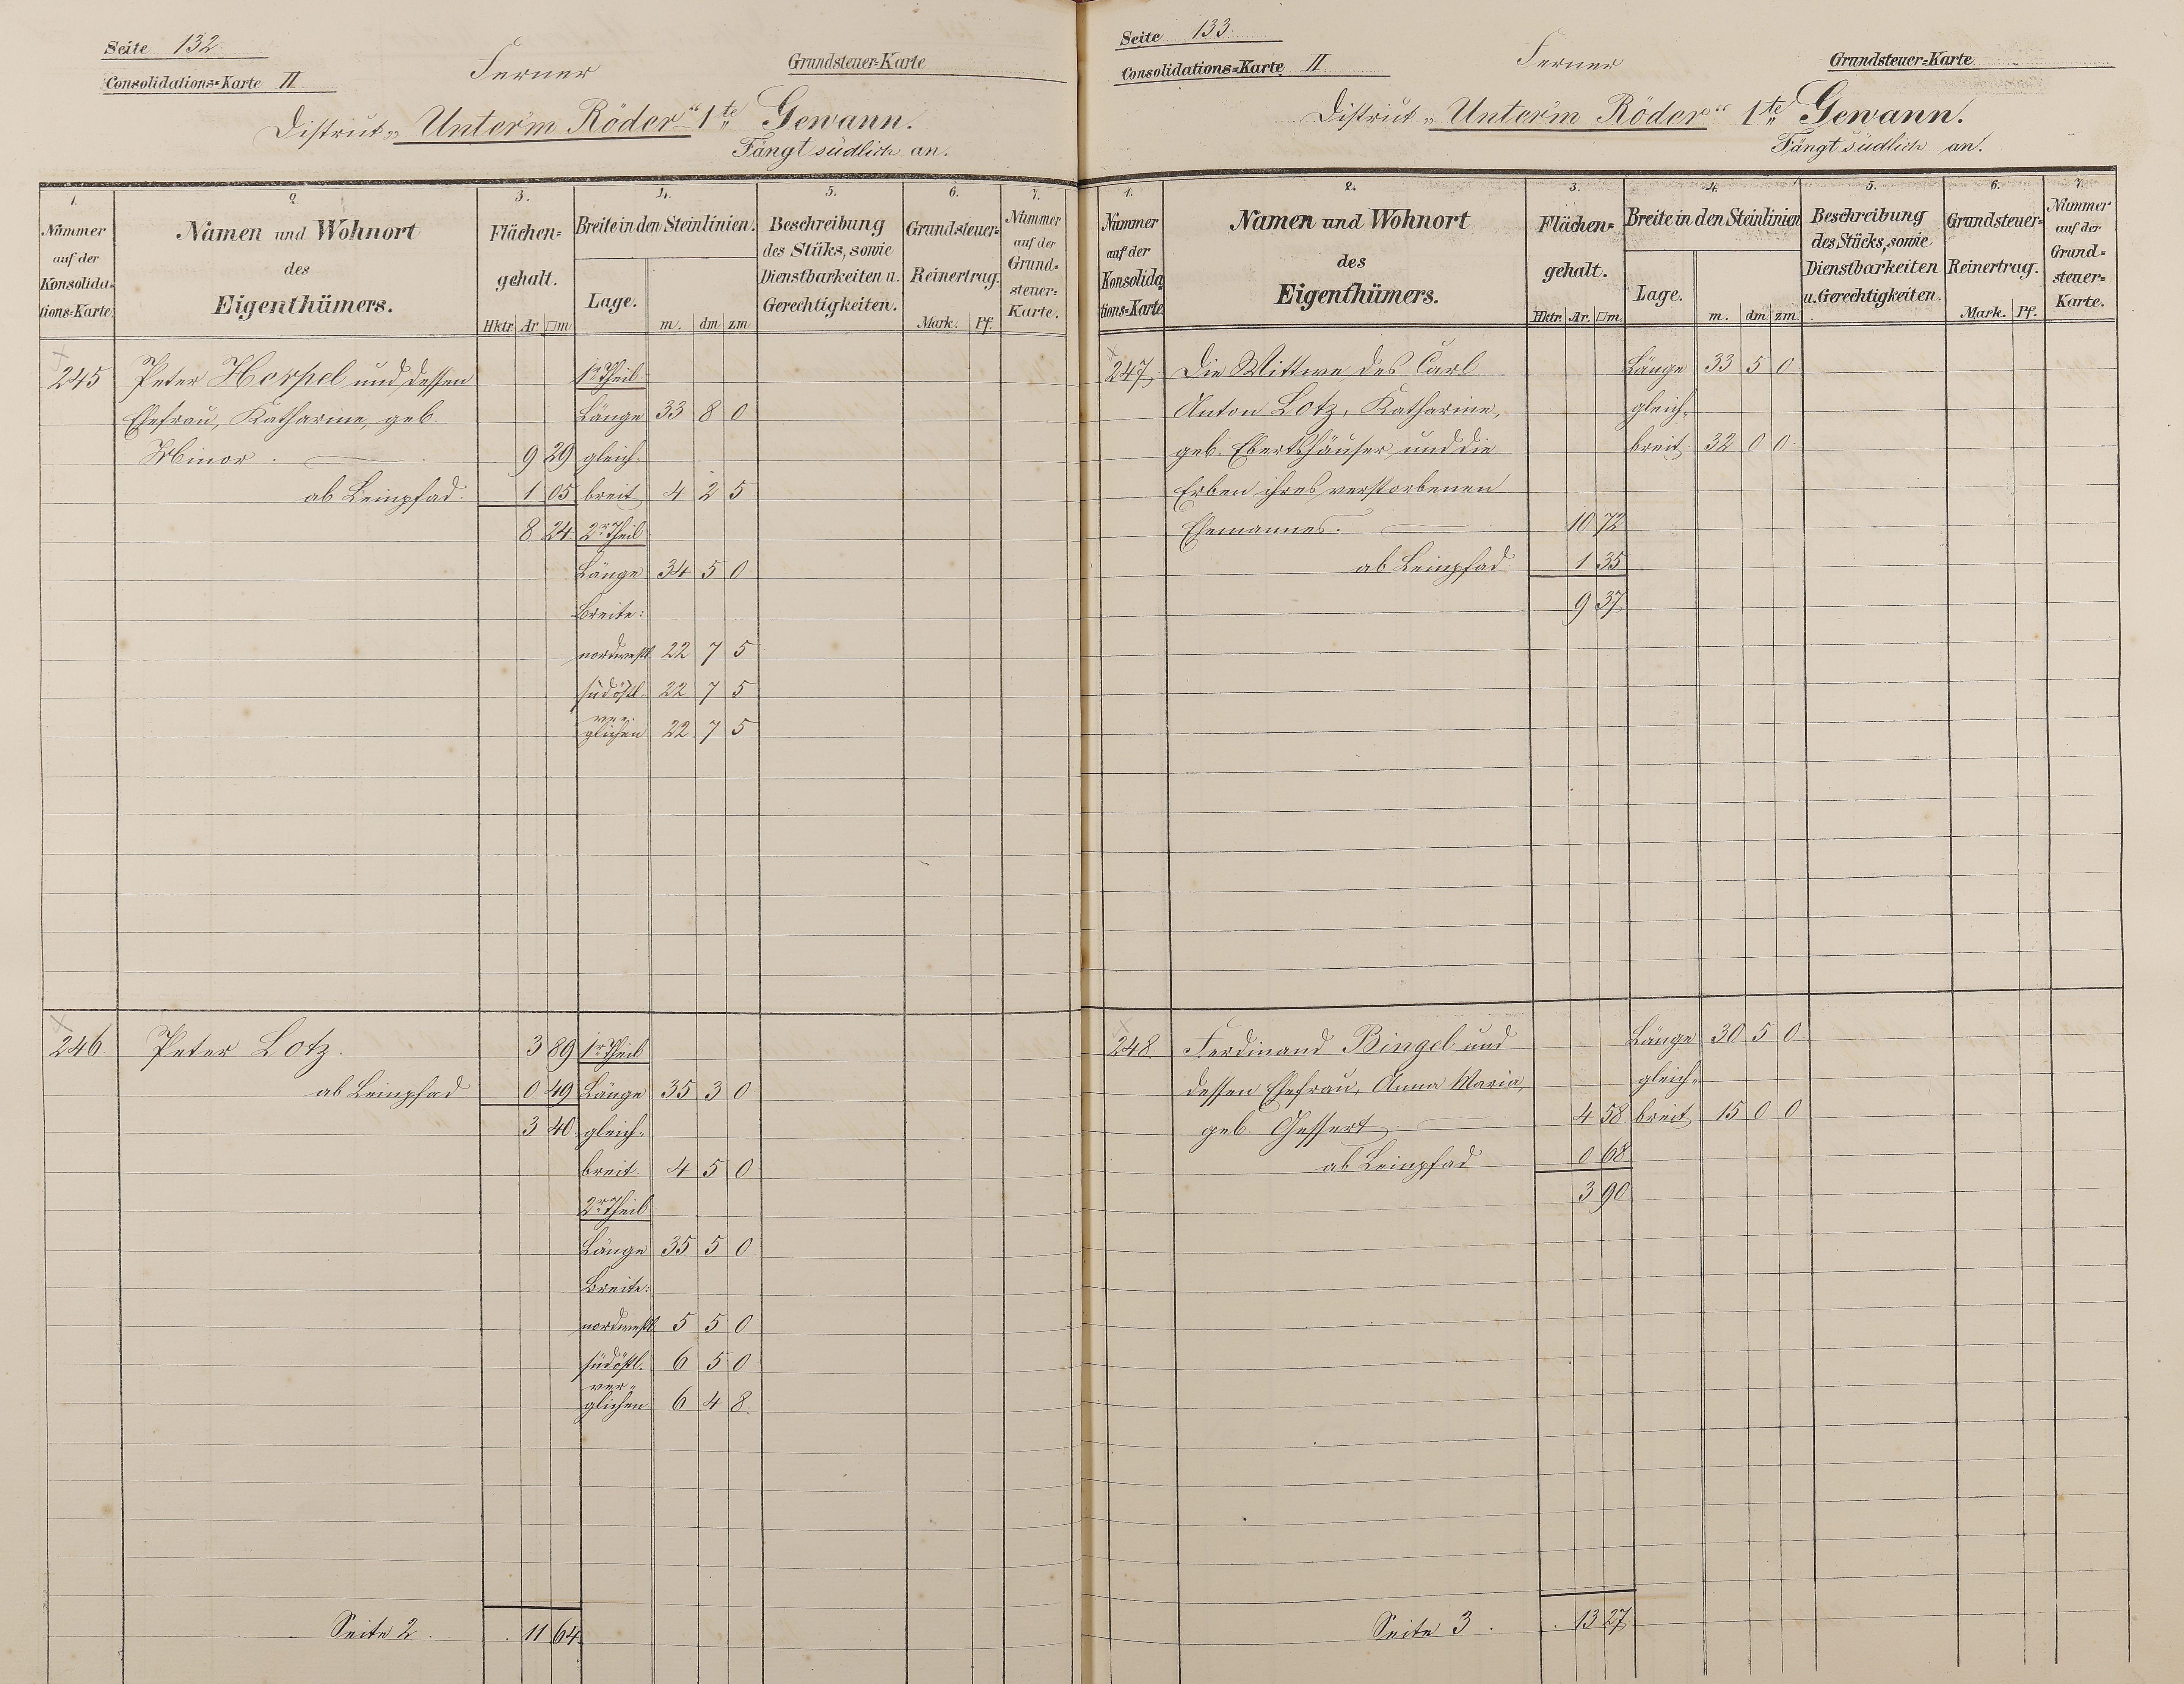 Seite 132
Consolidations=Karte II
Ferner
Grundsteuer=Karte
District „Unter'm Röder“ 1te Gewann.
Fängt südlich an.
1. 2. 3. 4. 5. 6. 7.
Nummer auf der Konsolidations=Karte.
Namen und Wohnort des Eigenthümers.
Flächen=gehalt.
Hktr Ar □m
Breite in den Steinlinien.
Lage. m. dm zm
Beschreibung des Stüks, sowie Dienstbarkeiten u. Gerechtigkeiten.
Grundsteuer=Reinertrag.
Mark. Pf.
Nummer auf der Grund=steuer=Karte.
245 Peter Horpel und dessen 1r Theil
Ehefrau, Katharine, geb. Länge 33 8 0
Minor. 9 29 gleich=
ab Leinpfad. 1 05 breit 4 2 5
8 24 2r Theil
Länge 34 5 0
Breite:
nordwestl. 22 7 5
südöstl. 22 7 5
ver=
glichen 22 7 5
246. Peter Lotz. 3 89 1r Theil
ab Leinpfad 0 49 Länge 35 3 0
3 40 gleich=
breit. 4 5 0
2r Theil
Länge 35 5 0
Breite:
nordwestl. 5 5 0
südöstl. 6 5 0
ver=
glichen 6 4 8.
Seite 2. 11 64
Seite 133.
Consolidations=Karte II
Ferner
Grundsteuer=Karte
District „Unter'm Röder“ 1te Gewann.
Fängt südlich an.
1. 2. 3. 4. 5. 6. 7.
Nummer auf der Konsolidations=Karte.
Namen und Wohnort des Eigenthümers.
Flächen=gehalt.
Hktr Ar. □m.
Breite in den Steinlinien
Lage. m. dm zm.
Beschreibung des Stücks, sowie Dienstbarkeiten u. Gerechtigkeiten.
Grundsteuer=Reinertrag.
Mark. Pf.
Nummer auf der Grund=steuer=Karte.
247. Die Wittwe des Carl Länge 33 5 0
Anton Lotz, Katharine, gleich=
geb. Ebertshäuser und die breit. 32 0 0.
Erben ihres verstorbenen
Ehemannes. 10 72
ab Leinpfad 1 35
9 37
248. Ferdinand Bingel und Länge 30 5 0
dessen Ehefrau, Anna Maria, gleich=
geb. Gessert. 4 58 breit. 15 0 0
ab Leinpfad 0 68
3 90
Seite 3. 13 27